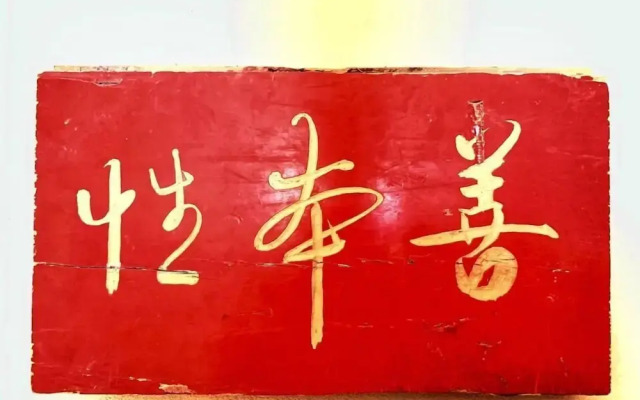 性本善